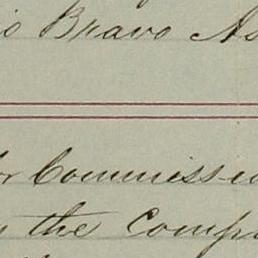 Bravo As
Commissi
the Comp